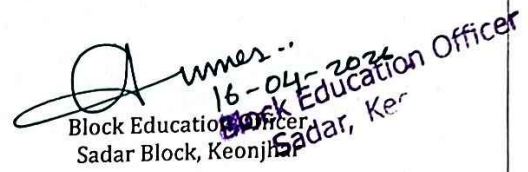 16-04-2026
Block Education Officer
Sadar, Ke
Block Education Officer,
Sadar Block, Keonjhar